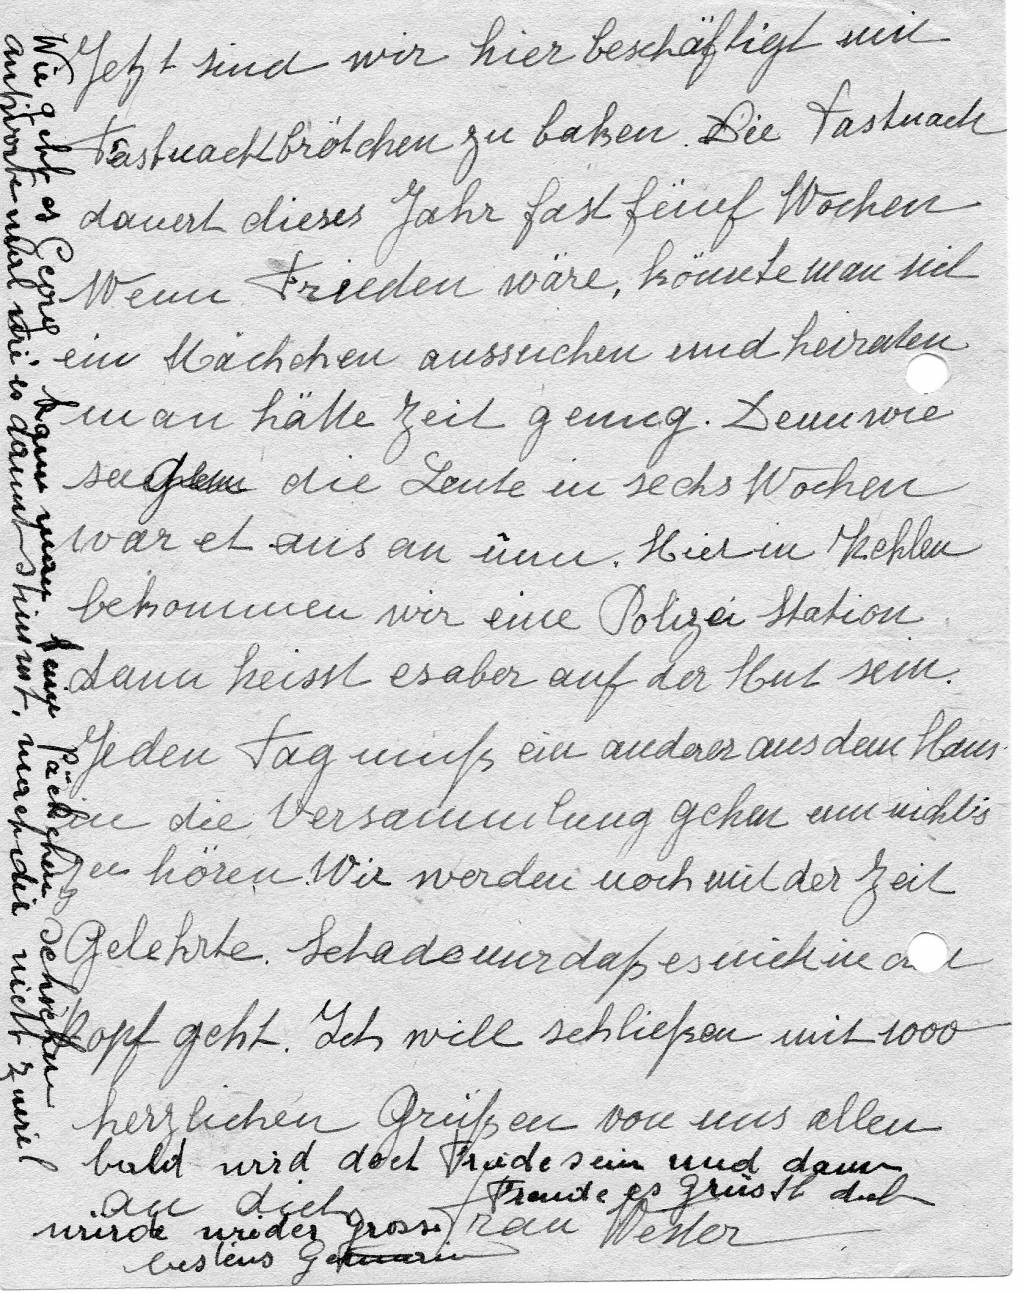 Jetzt sind wir hier beschäftigt mit
Fastnachtbrötchen zu baken. Die Fastnach
dauert dieses Jahr fast fünf Wochen
Wenn Frieden wäre, könnte man sich
ein Mädchen aussuchen und heiraten
man hätte Zeit genug. Denn wie
die Leute in sechs Wochen
war et aus an ünn. Hier in Kehlen
bekommen wir eine Polizei Station
dann heisst es aber auf der Hut sein.
Jeden Tag muß ein anderer aus dem Haus
in die Versammlung gehen um nichts
zu hören. Wir werden noch mit der Zeit
Gelehrte. Schade nur daß es nich in den
Kopf geht. Ich will schließen mit 1000
herzlichen Grüßen von uns allen
an dich Frau Wester
bald wird doch Friede sein und dann
würde wieder grosse Freude es grüsst dich
bestens
Wie geht es Georg kann man kein Päckchen schicken
antworte mal wie es damit stimmt, nicht